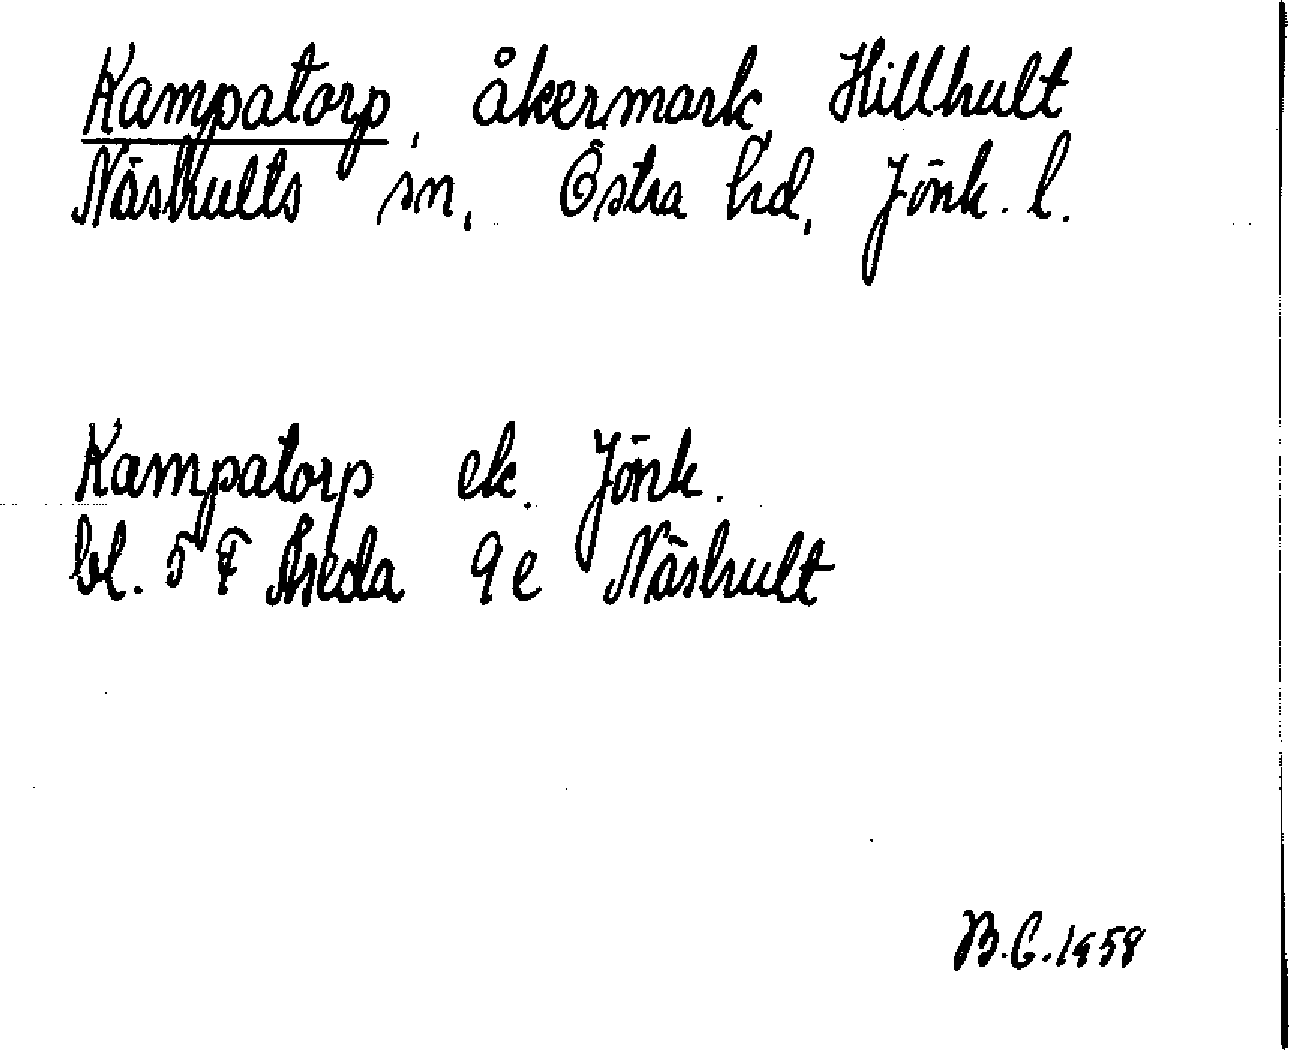 Kampatorp, åkermark, Hillhult
Näshults sn, Östra hd, Jönk. l.
Kampatorp ek. Jönk.
bl. 5 F Åseda 9 e Näshult
B.C. 1958